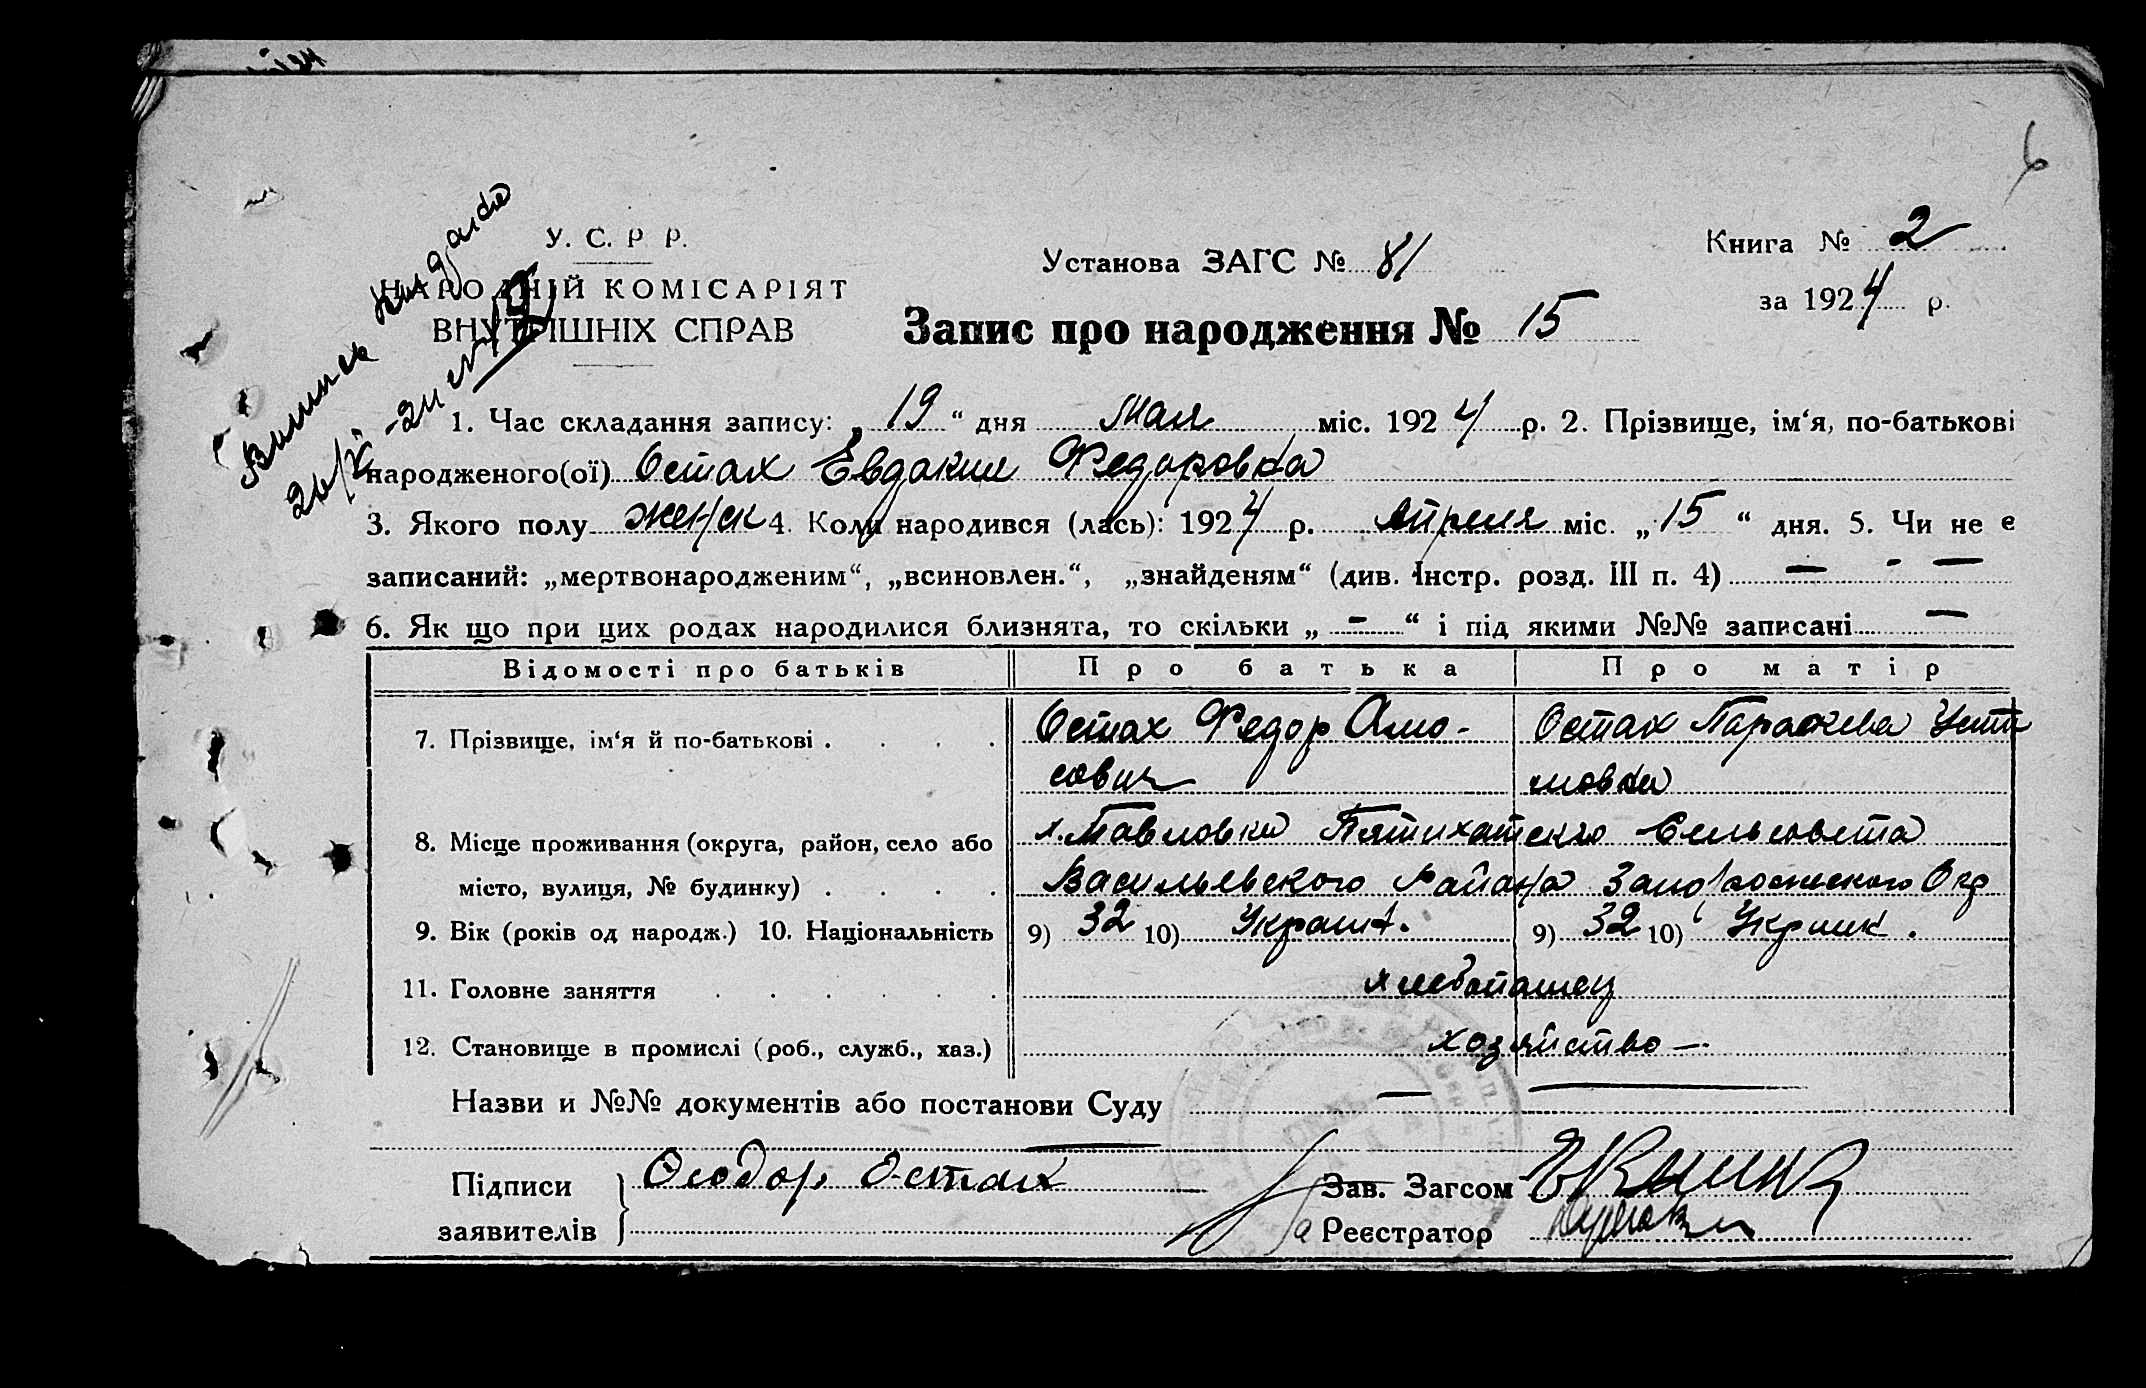 6
Виписк видано
26/X -24 №12
У. С. Р Р.
НАРОДНІЙ КОМІСАРІЯТ
ВНУТРІШНІХ СПРАВ
Установа ЗАГС № 81
Книга № 2
за 1924 р.
Запис про народження № 15
1. Час складання запису: „ 19 “ дня мая міс. 1924 р. 2. Прізвище, ім‘я, по-батькові
народженого(ої) Остах Евдакия Федоровна
3. Якого полу женск 4. Коли народився (лась): 1924 р. Апреля міс. „ 15 “ дня. 5. Чи не є
записаний: „мертвонародженим“, „всиновлен.“, „знайденям“ (див. Інстр. розд. III п. 4) — - —
6. Як що при цих родах народилися близнята, то скільки „ - “ і під якими №№ записані —
Відомості про батьків Про батька Про матір
7. Прізвище, ім‘я й по-батькові . . . . Остах Федор Амо- Остах Параскева Усти
сович мовна
8. Місце проживання (округа, район, село або х. Павловки Пятихатского Сельсовета
місто, вулиця, № будинку) . . . . Васильевского Района Запорожского Окр
9. Вік (років од народж.) 10. Національність 9) 32 10) Украин. 9) 32 10) Украинк.
11. Головне заняття . . . . . . хлебопашец
12. Становище в промислі (роб., служб., хаз.) хозяйство —
Назви и №№ документів або постанови Суду —
Підписи заявителів } Феодор Остах
Зав. Загсом
За Реєстратор